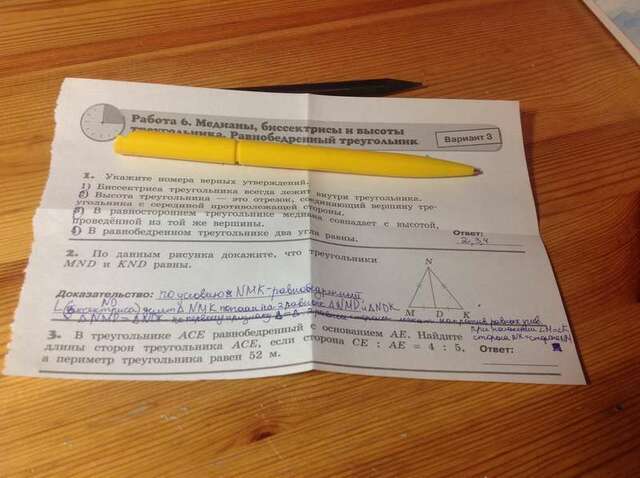 Работа 6. Медианы, биссектрисы и высоты
треугольника. Равнобедренный треугольник
Вариант 3
1. Укажите номера верных утверждений.
1) Биссектриса треугольника всегда лежит внутри треугольника.
2) Высота треугольника — это отрезок, соединяющий вершину тре-
угольника с серединой противолежащей стороны.
3) В равностороннем треугольнике медиана совпадает с высотой,
проведённой из той же вершины.
4) В равнобедренном треугольнике два угла равны.
Ответ:
2,3,4
2. По данным рисунка докажите, что треугольники
MND и KND равны.
N
M D K
Доказательство: по условию NMK - равнобедренный
ND
биссектриса делит △NMK пополам на 2 равных △NMD и △NDK
△NMD = △NDK по первому признаку
3. В треугольнике ACE равнобедренный с основанием AE. Найдите
длины сторон треугольника ACE, если сторона CE : AE = 4 : 5,
а периметр треугольника равен 52 м.
Ответ: